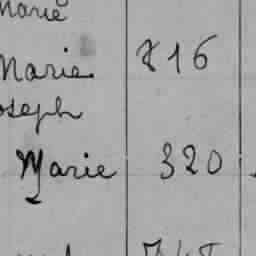 Marie
Marie 816
Joseph
Marie 320